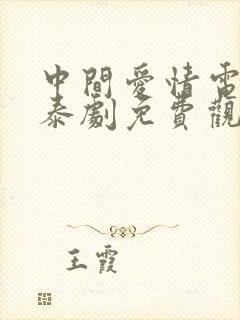 中間愛情電
泰劇免費觀
王霞